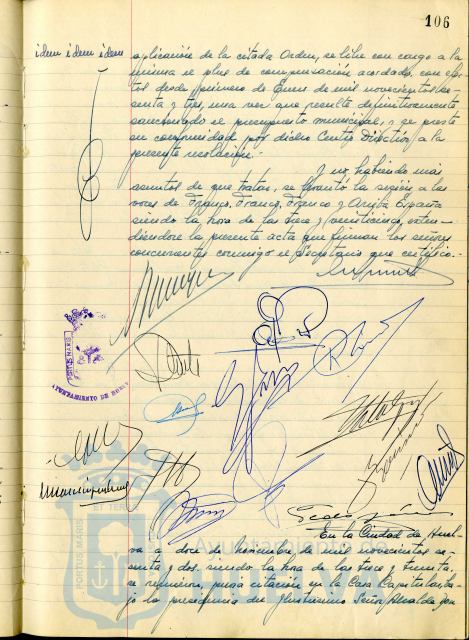 106
idem idem idem
aplicación de la citada Orden, se libre con cargo a la
misma el plus de compensación acordado, con efec-
tos desde primero de Enero de mil novecientos se-
senta y tres, una vez que resulte definitivamente
sancionado el presupuesto municipal, y se preste
su conformidad por dicho Centro Directivo a la
presente resolución.
Y no habiendo más
asuntos de que tratar, se levantó la sesión a las
voces de Franco, Franco, Franco y Arriba España
siendo la hora de las trece y veinticinco, exten-
diéndose la presente acta que firman los señores
concurrentes conmigo el Secretario que certifico.
PORTUS MARIS
AYUNTAMIENTO DE HUELVA
En la Ciudad de Huel-
va a doce de de mil novecientos se-
senta y dos, siendo la hora de las trece y treinta,
se reunieron, previa citación en la Casa Capitular, ba-
jo la presidencia del Ilustrísimo Señor Alcalde Don
PORTUS MARIS ET TERRAE
Ayuntamiento
HUELVA